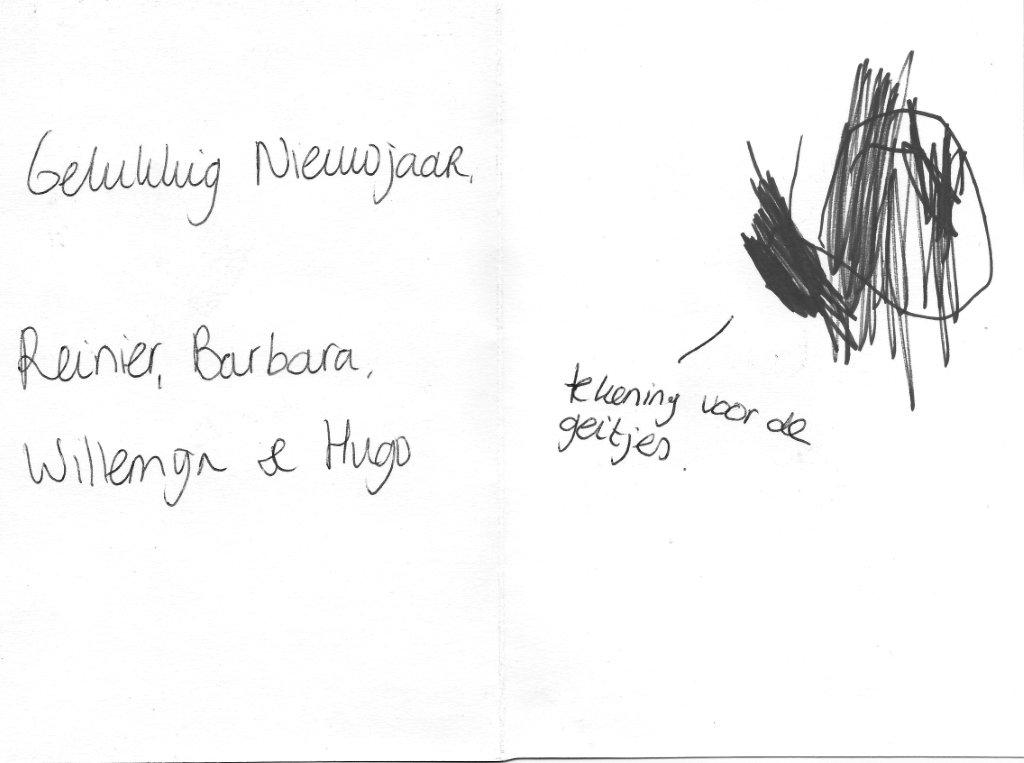 Gelukkig Nieuwjaar,
Reinier, Barbara,
Willemijn & Hugo
tekening voor de
geitjes.